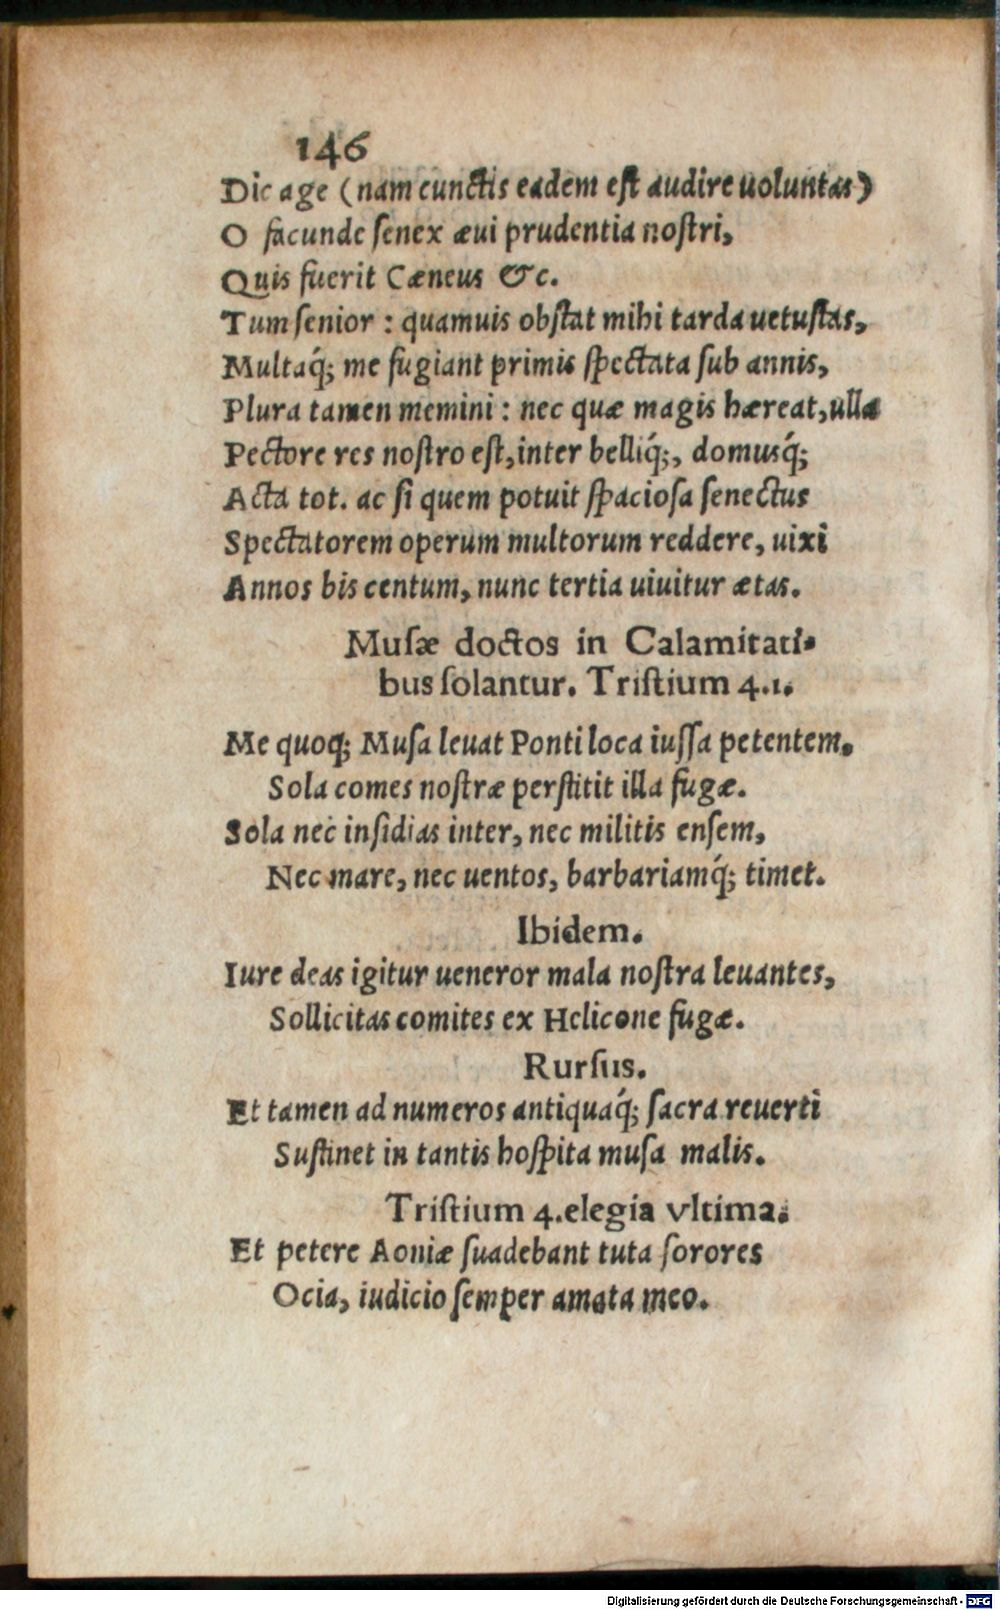 146
Dic age (nam cunctis eadem est audire uoluntas)
O facunde senex æui prudentia nostri,
Quis fuerit Cæneus &c.
Tum senior : quamuis obstat mihi tarda uetustas,
Multaq́; me fugiant primis spectata sub annis,
Plura tamen memini : nec quæ magis hæreat, ulla
Pectore res nostro est, inter belliq́;, domusq́;
Acta tot. ac si quem potuit spaciosa senectus
Spectatorem operum multorum reddere, uixi
Annos bis centum, nunc tertia uiuitur ætas.
Musæ doctos in Calamitati-
bus solantur. Tristium 4.1.
Me quoq; Musa leuat Ponti loca iussa petentem.
Sola comes nostræ perstitit illa fugæ.
Sola nec insidias inter, nec militis ensem,
Nec mare, nec uentos, barbariamq́; timet.
Ibidem.
Iure deas igitur ueneror mala nostra leuantes,
Sollicitas comites ex Helicone fugæ.
Rursus.
Et tamen ad numeros antiquaq́; sacra reuerti
Sustinet in tantis hospita musa malis.
Tristium 4.elegia vltima.
Et petere Aoniæ suadebant tuta sorores
Ocia, iudicio semper amata meo.
Digitalisierung gefördert durch die Deutsche Forschungsgemeinschaft - DFG